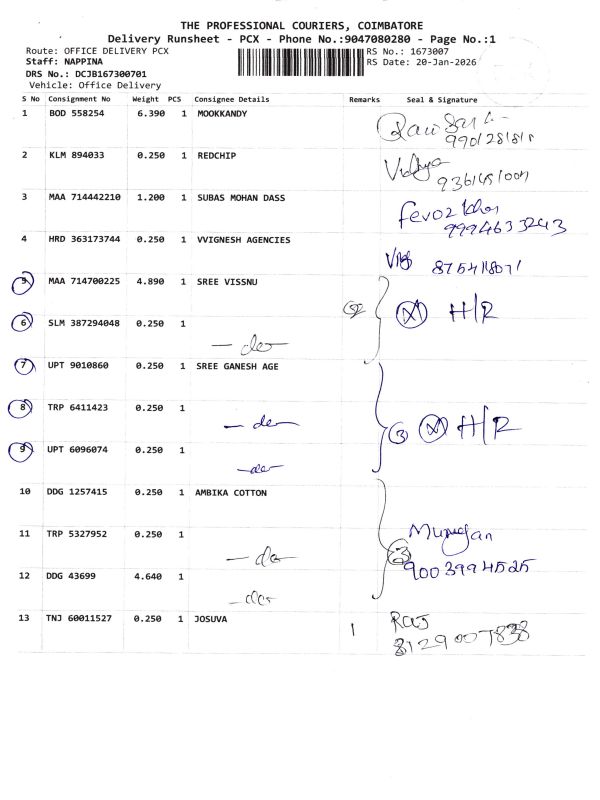 THE PROFESSIONAL COURIERS, COIMBATORE
Delivery Runsheet - PCX - Phone No.:9047080280 - Page No.:1
Route: OFFICE DELIVERY PCX RS No.: 1673007
Staff: NAPPINA RS Date: 20-Jan-2026
DRS No.: DCJB167300701
Vehicle: Office Delivery
S No Consignment No Weight PCS Consignee Details Remarks Seal & Signature
1 BOD 558254 6.390 1 MOOKKANDY
2 KLM 894033 0.250 1 REDCHIP Vidya
3 MAA 714442210 1.200 1 SUBAS MOHAN DASS
9994633243
4 HRD 363173744 0.250 1 VVIGNESH AGENCIES
5 MAA 714700225 4.890 1 SREE VISSNU 2 H/R
6 SLM 387294048 0.250 1 - do
7 UPT 9010860 0.250 1 SREE GANESH AGE
8 TRP 6411423 0.250 1 - do 3 H/R
9 UPT 6096074 0.250 1 - do
10 DDG 1257415 0.250 1 AMBIKA COTTON
11 TRP 5327952 0.250 1 - do 3 Murugan
9003994525
12 DDG 43699 4.640 1 - do
13 TNJ 60011527 0.250 1 JOSUVA 1 Raj